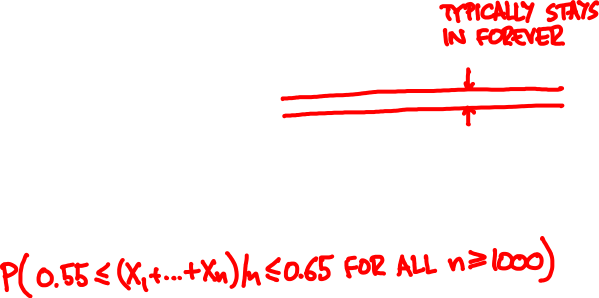 TYPICALLY STAYS
IN FOREVER
P( 0.55 ≤ (X₁+...+Xₙ)/n ≤ 0.65 FOR ALL n ≥ 1000 )